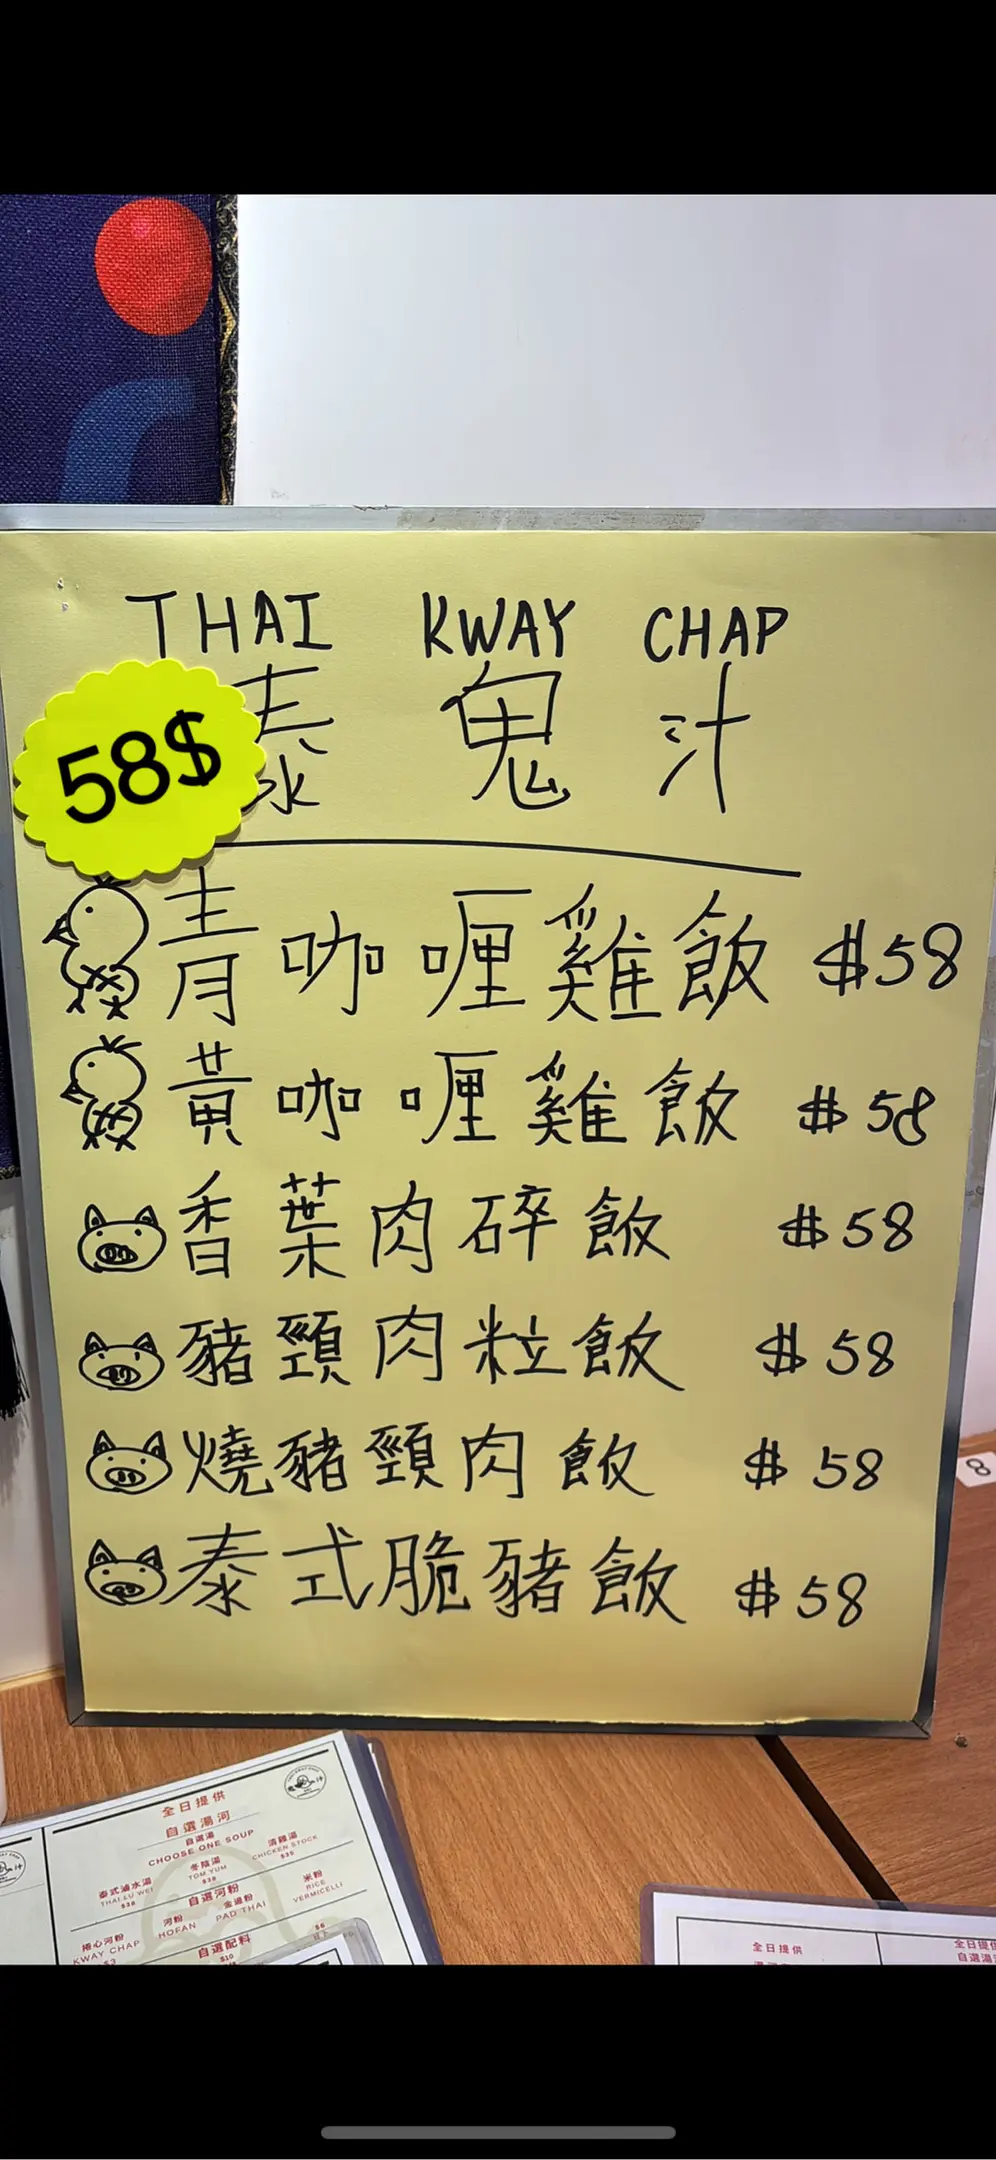 THAI KWAY CHAP
泰鬼汁
58$
青咖喱雞飯 $58
黃咖喱雞飯 $58
香葉肉碎飯 $58
豬頸肉粒飯 $58
燒豬頸肉飯 $58
泰式脆豬飯 $58
8
全日提供
自選湯河
自選湯
CHOOSE ONE SOUP
泰式滷水湯
THAI LU WEI
$38
冬陰湯
TOM YUM
$38
清雞湯
CHICKEN STOCK
$35
自選河粉
捲心河粉
KWAY CHAP
$3
河粉
HOFAN
金邊粉
PAD THAI
米粉
RICE
VERMICELLI
自選配料
$10
$6
全日提供
全日提供
自選湯